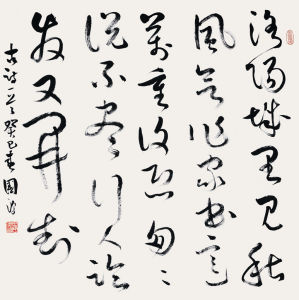 洛阳城里见秋
风欲作家书意
万重复恐匆匆
说不尽行人临
发又开封
古诗一首 癸巳春 国